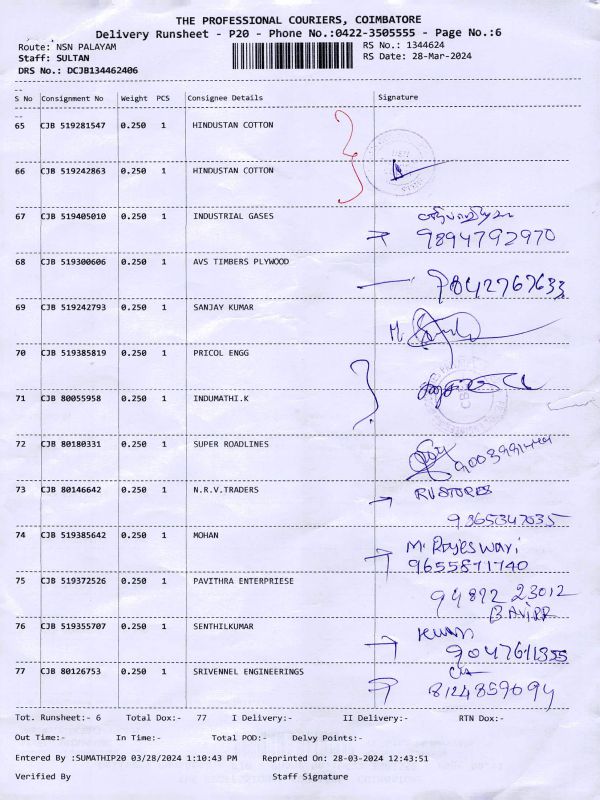 THE PROFESSIONAL COURIERS, COIMBATORE
Delivery Runsheet - P20 - Phone No.:0422-3505555 - Page No.:6
Route: NSN PALAYAM RS No.: 1344624
Staff: SULTAN RS Date: 28-Mar-2024
DRS No.: DCJB134462406
S No Consignment No Weight PCS Consignee Details Signature
65 CJB 519281547 0.250 1 HINDUSTAN COTTON
66 CJB 519242863 0.250 1 HINDUSTAN COTTON
67 CJB 519405010 0.250 1 INDUSTRIAL GASES
9894792970
68 CJB 519300606 0.250 1 AVS TIMBERS PLYWOOD
7842767633
69 CJB 519242793 0.250 1 SANJAY KUMAR
70 CJB 519385819 0.250 1 PRICOL ENGG
71 CJB 80055958 0.250 1 INDUMATHI.K
72 CJB 80180331 0.250 1 SUPER ROADLINES
73 CJB 80146642 0.250 1 N.R.V.TRADERS RV STORES
9365347035
74 CJB 519385642 0.250 1 MOHAN M. Rajeswari
9655871740
75 CJB 519372526 0.250 1 PAVITHRA ENTERPRIESE
94892 23012
76 CJB 519355707 0.250 1 SENTHILKUMAR
9047611355
77 CJB 80126753 0.250 1 SRIVENNEL ENGINEERINGS
8124859694
Tot. Runsheet:- 6 Total Dox:- 77 I Delivery:- II Delivery:- RTN Dox:-
Out Time:- In Time:- Total POD:- Delvy Points:-
Entered By :SUMATHIP20 03/28/2024 1:10:43 PM Reprinted On: 28-03-2024 12:43:51
Verified By Staff Signature